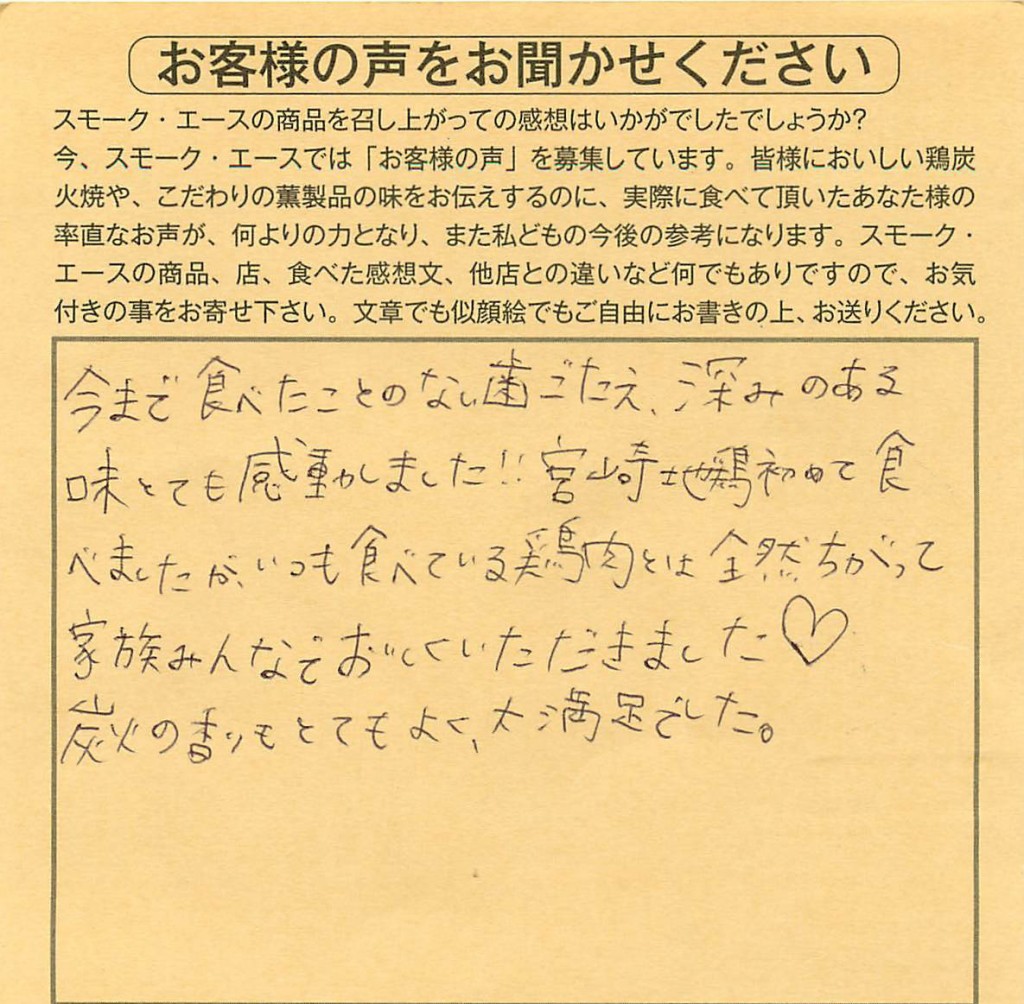 お客様の声をお聞かせください
スモーク・エースの商品を召し上がっての感想はいかがでしたでしょうか?
今、スモーク・エースでは「お客様の声」を募集しています。皆様においしい鶏炭
火焼や、こだわりの薫製品の味をお伝えするのに、実際に食べて頂いたあなた様の
率直なお声が、何よりの力となり、また私どもの今後の参考になります。スモーク・
エースの商品、店、食べた感想文、他店との違いなど何でもありですので、お気
付きの事をお寄せ下さい。文章でも似顔絵でもご自由にお書きの上、お送りください。
今まで食べたことのない歯ごたえ、深みのある
味とても感動しました!!宮崎地鶏初めて食
べましたが、いつも食べている鶏肉とは全然ちがって
家族みんなでおいしくいただきました♡
炭火の香りもとてもよく、大満足でした。